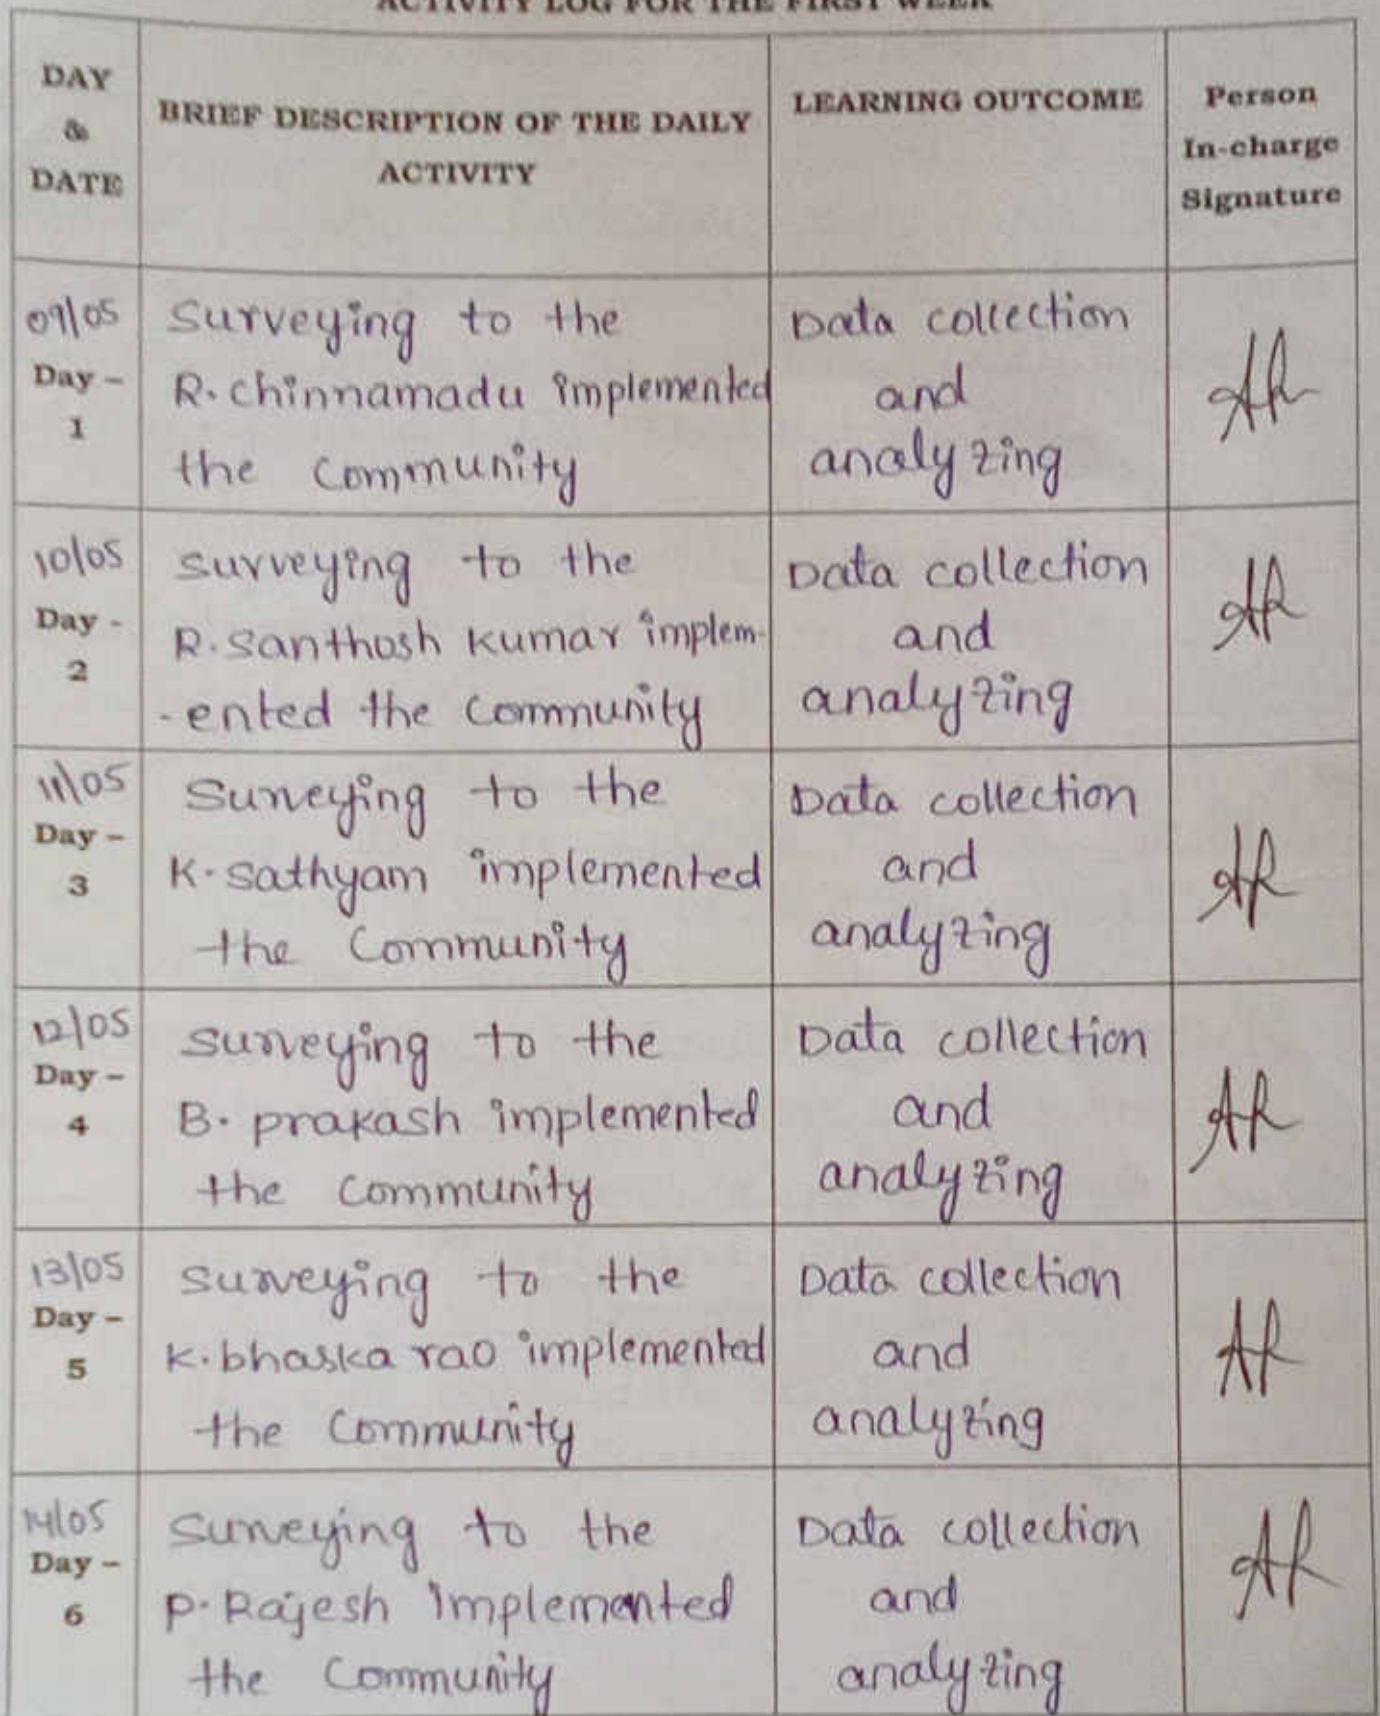 ACTIVITY LOG FOR THE FIRST WEEK
DAY
&
DATE
BRIEF DESCRIPTION OF THE DAILY
ACTIVITY
LEARNING OUTCOME
Person
In-charge
Signature
09/05
Day –
1
Surveying to the
R. chinnamadu implemented
the community
Data collection
and
analyzing
10/05
Day -
2
surveying to the
R. santhosh kumar implem-
-ented the community
Data collection
and
analyzing
11/05
Day –
3
Surveying to the
K. sathyam implemented
the community
Data collection
and
analyzing
12/05
Day –
4
surveying to the
B. prakash implemented
the community
Data collection
and
analyzing
13/05
Day –
5
surveying to the
K. bhaska rao implemented
the community
Data collection
and
analyzing
14/05
Day –
6
Surveying to the
P. Rajesh implemented
the community
Data collection
and
analyzing